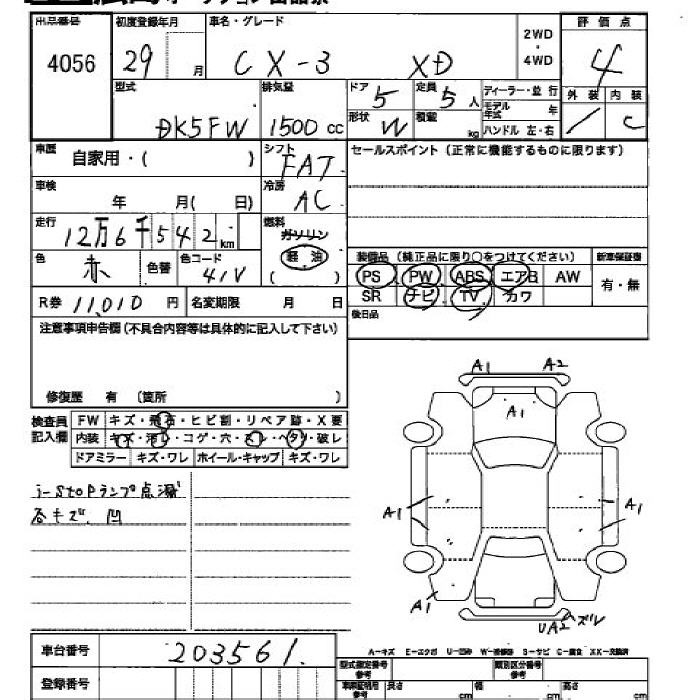 出品番号 初度登録年月 車名・グレード 2WD ・ 4WD 評価点
4056 29 月 CX-3 XD 4
型式 排気量 ドア 5 定員 5人 ディーラー・並行 外装 内装
DK5FW 1500cc 形状 W 積載 kg モデル年式 年 ハンドル 左・右 C
車歴 自家用・( ) シフト FAT セールスポイント(正常に機能するものに限ります)
車検 年 月( 日) 冷房 AC
走行 12万6千542km 燃料 ガソリン
色 赤 色替 色コード 41V 軽油 ( )
装備品(純正品に限り○をつけてください) 新車保証書
PS PW ABS エアB AW 有・無
SR ナビ TV カワ
R券 11,010円 名変期限 月 日 後日品
注意事項申告欄(不具合内容等は具体的に記入して下さい)
修復歴 有 (箇所 )
検査員記入欄 FW キズ・飛石・ヒビ割・リペア跡・X要
内装 キズ・汚レ・コゲ・穴・スレ・ヘタリ・破レ
ドアミラー キズ・ワレ ホイール・キャップ キズ・ワレ
i-stopランプ点滅
各キズ、凹
A1 A2
A1
A1 A1
A1 UA2 ズル
A-キズ E-エクボ U-凹み W-補修跡 S-サビ C-腐食 XX-交換済
車台番号 203561
登録番号
型式指定番号 類別区分番号
長さ cm 幅 cm 高さ cm